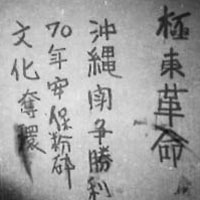 極東革命
沖縄闘争勝利
70年安保粉砕
文化奪還